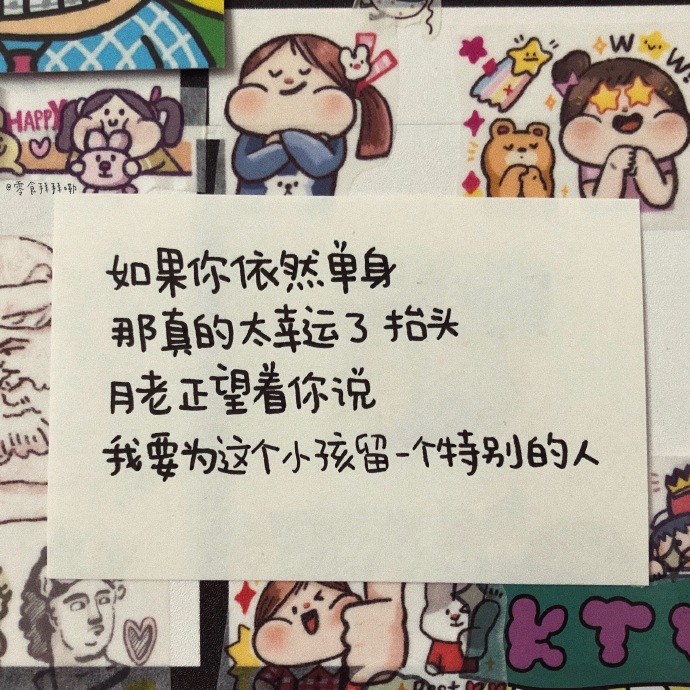 HAPPY
W
W
@零食拜拜啦
如果你依然单身
那真的太幸运了 抬头
月老正望着你说
我要为这个小孩留一个特别的人
KT